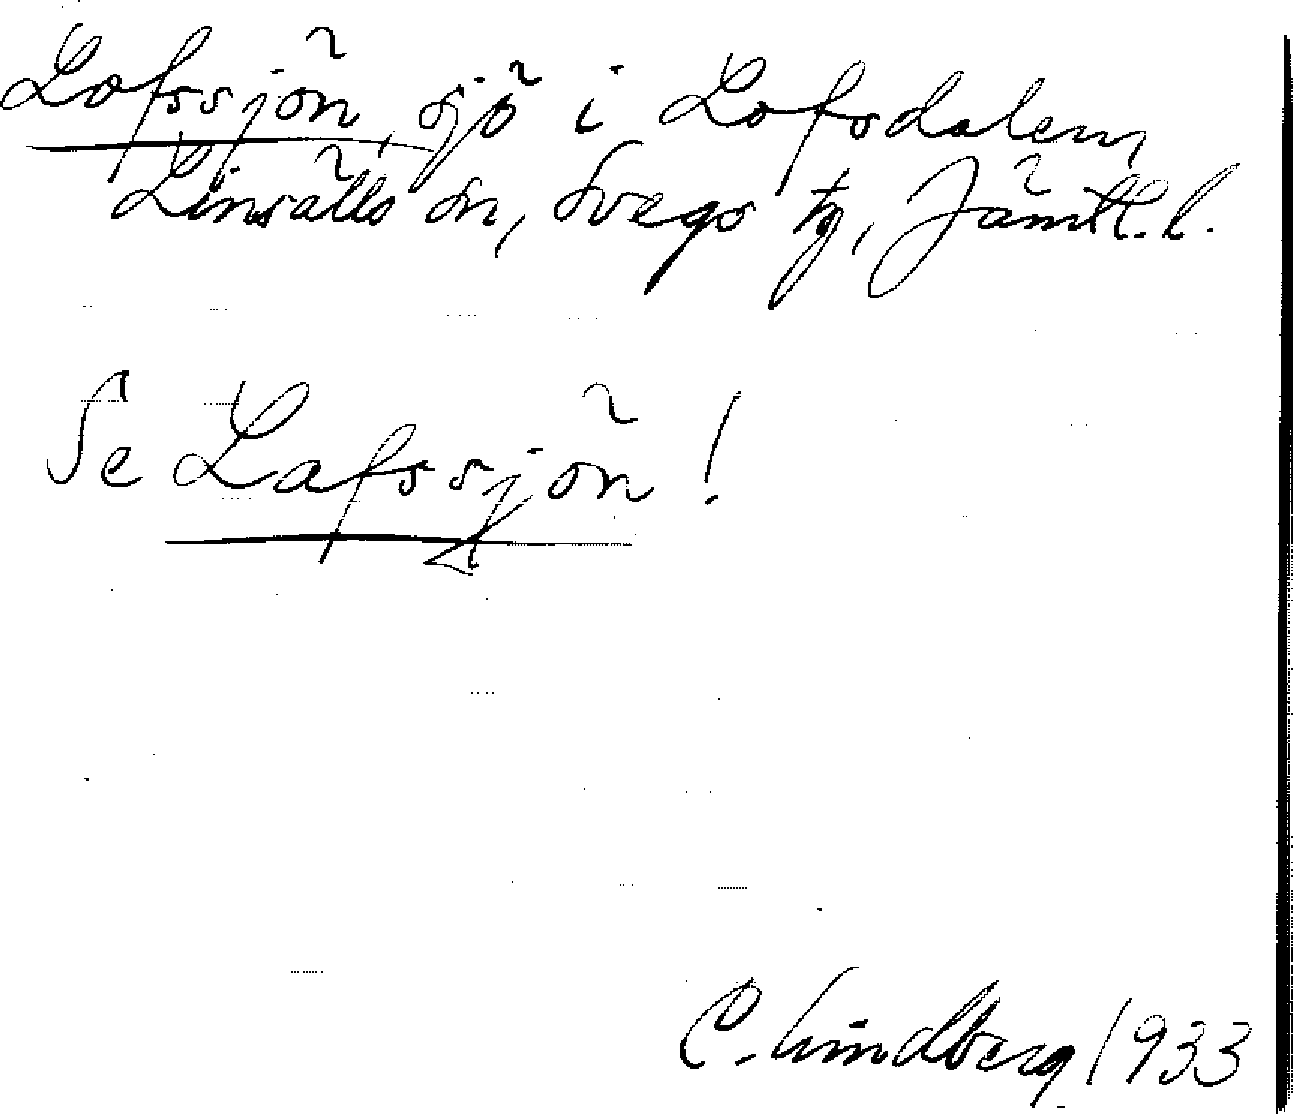 Lofssjön, sjö i Lofsdalen,
Linsälls sn, Svegs tg, Jämtl. l.
Se Lafssjön!
C. Lindberg 1933